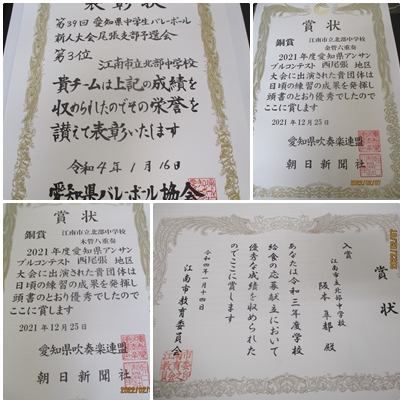 表彰状
第39回 愛知県中学生バレーボール
新人大会尾張支部予選会
第3位
江南市立北部中学校
貴チームは上記の成績を
収められたのでその栄誉を
讃えて表彰いたします
令和4年1月16日
愛知県バレーボール協会
賞状
銅賞 江南市立北部中学校
金管八重奏
2021年度愛知県アンサン
ブルコンテスト 西尾張 地区
大会に出演された貴団体は
日頃の練習の成果を発揮し
頭書のとおり優秀でしたので
ここに賞します
2021年12月25日
愛知県吹奏楽連盟
朝日新聞社
賞状
銅賞 江南市立北部中学校
木管八重奏
2021年度愛知県アンサン
ブルコンテスト 西尾張 地区
大会に出演された貴団体は
日頃の練習の成果を発揮し
頭書のとおり優秀でしたので
ここに賞します
2021年12月25日
愛知県吹奏楽連盟
朝日新聞社
賞状
入賞
江南市立北部中学校
殿
あなたは令和三年度学校
給食の応募献立において
優秀な成績を収められた
のでここに賞します
令和四年一月十四日
江南市教育委員会